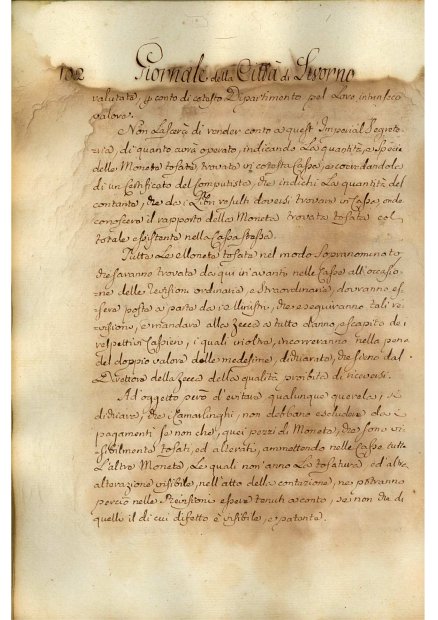 102 Giornale della Città di Livorno
valutata, p conto di cotesto Dipartimento pel loro intrinseco
valore.
Non lascerà di render conto a quest' Imperial Segreto-
ria, di quanto avrà operato, indicando la quantità, e Specie
delle Monete tosate, trovate in cotesta Cassa, e corredandole
di un Certificato del Computista, che indichi la quantità del
contante, che da i Libri resulti doversi trovare in Cassa, onde
conoscere il rapporto della Moneta trovata tosata col
totale esistente nella Cassa stessa.
Tutte le Monete tosate nel modo Sopranominato,
che saranno trovate da qui in avanti nelle Casse all'occasio-
ne delle revisioni ordinarie, e Straordinarie, dovranno es-
sere poste a parte da i Ministri, che eseguiranno tali re-
visioni, e mandate alla Zecca a tutto danno, e scapito de i
respettivi Cassieri, i quali inoltre, incorreranno nella pena
del doppio valore delle medesime, dichiarate, che siano dal
Direttore della Zecca della qualità proibita di riceversi.
Ad oggetto però d'evitare qualunque querela, si
dichiara, che i Camarlinghi, non debbano escludere da i
pagamenti se non che, quei pezzi di Moneta, che sono vi-
sibilmente tosati, ed alterati, ammettendo nelle Casse tutta
l'altra Moneta, le quali non anno la tosatura, ed altra
alterazione visibile, nell'atto della contazione, ne potranno
perciò nelle essere tenuti a conto, se non che di
quelle il di cui difetto è visibile, e patente.